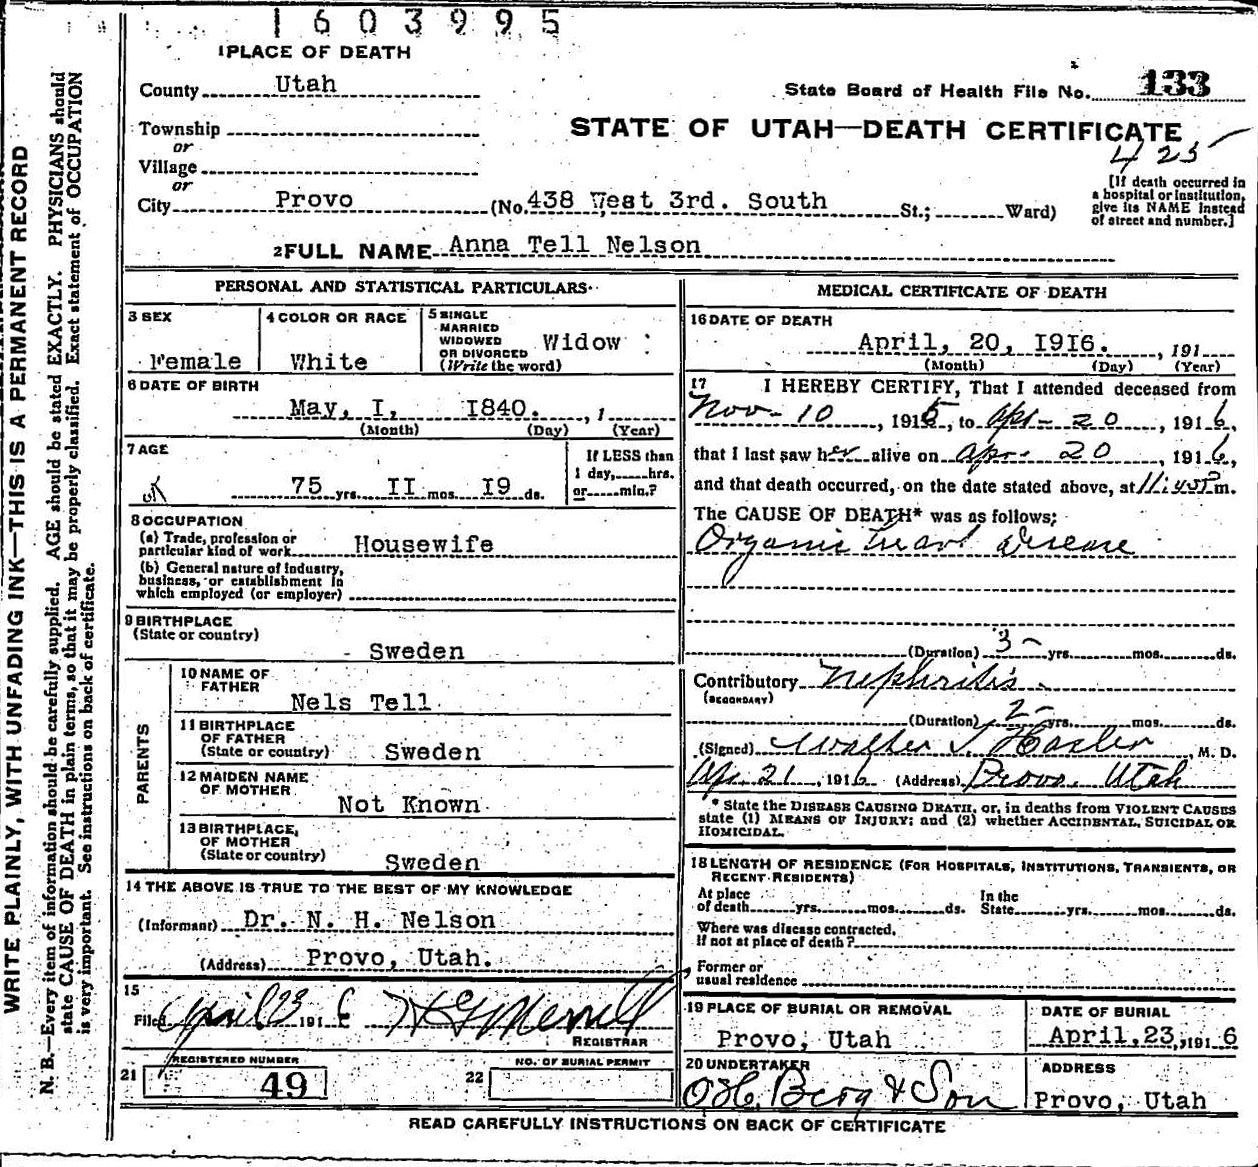 1603995
1 PLACE OF DEATH
County Utah
State Board of Health File No. 133
Township
or
STATE OF UTAH—DEATH CERTIFICATE
425
Village
or
City Provo (No. 438 West 3rd. South St.; Ward)
[If death occurred in
a hospital or institution,
give its NAME instead
of street and number.]
2 FULL NAME Anna Tell Nelson
PERSONAL AND STATISTICAL PARTICULARS
3 SEX
Female
4 COLOR OR RACE
White
5 SINGLE
MARRIED
WIDOWED
OR DIVORCED
(Write the word)
Widow
6 DATE OF BIRTH
May, I, I840. , 1
(Month) (Day) (Year)
7 AGE
75 yrs. II mos. I9 ds.
If LESS than
1 day, hrs.
or min.?
8 OCCUPATION
(a) Trade, profession or
particular kind of work Housewife
(b) General nature of industry,
business, or establishment in
which employed (or employer)
9 BIRTHPLACE
(State or country)
Sweden
PARENTS
10 NAME OF
FATHER
Nels Tell
11 BIRTHPLACE
OF FATHER
(State or country) Sweden
12 MAIDEN NAME
OF MOTHER
Not Known
13 BIRTHPLACE,
OF MOTHER
(State or country) Sweden
14 THE ABOVE IS TRUE TO THE BEST OF MY KNOWLEDGE
(Informant) Dr. N. H. Nelson
(Address) Provo, Utah.
15
Filed April 23 1916 Merrill
REGISTRAR
21 REGISTERED NUMBER
49
22 NO. OF BURIAL PERMIT
MEDICAL CERTIFICATE OF DEATH
16 DATE OF DEATH
April, 20, I9I6. , 191
(Month) (Day) (Year)
17 I HEREBY CERTIFY, That I attended deceased from
Nov-10, 1915, to Apr-20, 1916,
that I last saw her alive on Apr-20, 1916,
and that death occurred, on the date stated above, at 11:45P m.
The CAUSE OF DEATH* was as follows:
Organic heart disease
(Duration) 3 yrs. mos. ds.
Contributory Nephritis
(SECONDARY)
(Duration) 2 yrs. mos. ds.
(Signed) Walter T Hasler, M. D.
Apr 21, 1916 (Address) Provo, Utah
* State the DISEASE CAUSING DEATH, or, in deaths from VIOLENT CAUSES
state (1) MEANS OF INJURY; and (2) whether ACCIDENTAL, SUICIDAL OR
HOMICIDAL.
18 LENGTH OF RESIDENCE (FOR HOSPITALS, INSTITUTIONS, TRANSIENTS, OR
RECENT RESIDENTS)
At place
of death yrs. mos. ds.
In the
State yrs. mos. ds.
Where was disease contracted,
if not at place of death?
Former or
usual residence
19 PLACE OF BURIAL OR REMOVAL
Provo, Utah
DATE OF BURIAL
April, 23, , 191 6
20 UNDERTAKER
O H. Berg & Son
ADDRESS
Provo, Utah
READ CAREFULLY INSTRUCTIONS ON BACK OF CERTIFICATE
WRITE PLAINLY, WITH UNFADING INK—THIS IS A PERMANENT RECORD
N. B.—Every item of information should be carefully supplied. AGE should be stated EXACTLY. PHYSICIANS should
state CAUSE OF DEATH in plain terms, so that it may be properly classified. Exact statement of OCCUPATION
is very important. See instructions on back of certificate.